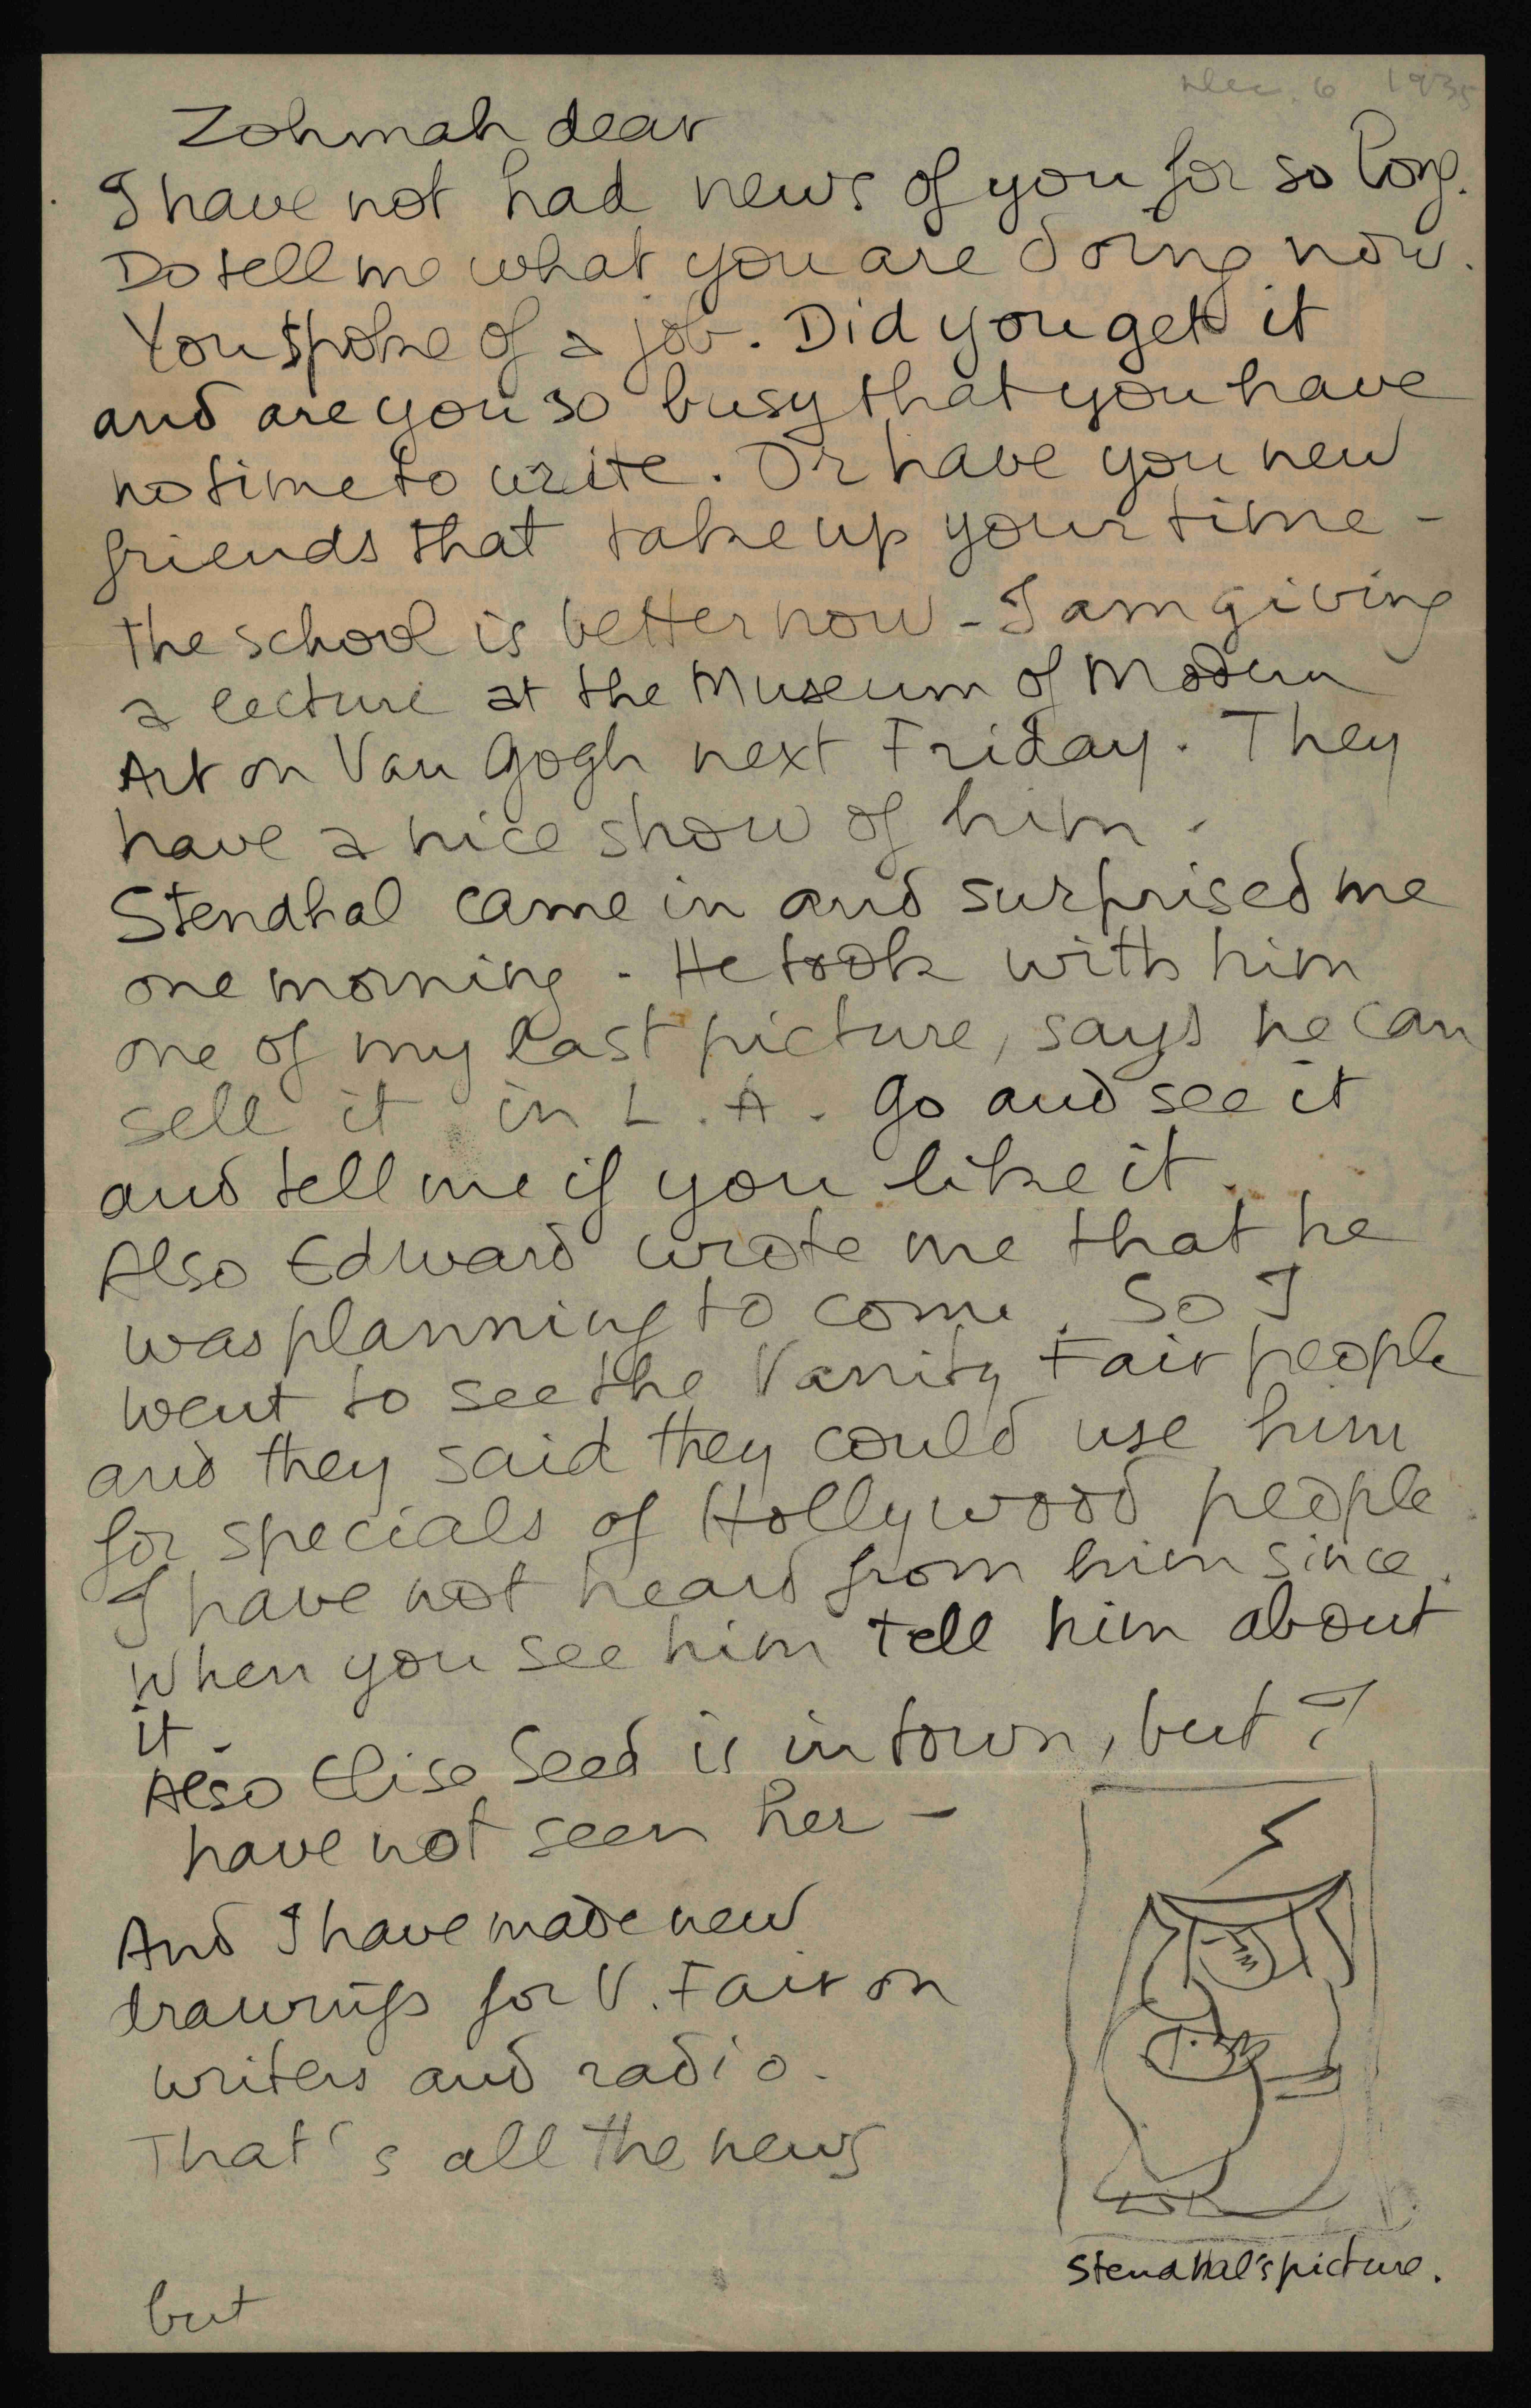 Dec. 6 1935
Zohmah dear
I have not had news of you for so long.
Do tell me what you are doing now.
You spoke of a job. Did you get it
and are you so busy that you have
no time to write. Or have you new
friends that take up your time -
the school is better now - I am giving
a lecture at the Museum of Modern
Art on Van Gogh next Friday. They
have a nice show of him.
Stendhal came in and surprised me
one morning - He took with him
one of my last picture, says he can
sell it in L.A. Go and see it
and tell me if you like it.
Also Edward wrote me that he
was planning to come. So I
went to see the Vanity Fair people
and they said they could use him
for specials of Hollywood people.
I have not heard from him since.
When you see him tell him about
it.
Also Elise Seed is in town, but I
have not seen her -
And I have made new
drawings for V. Fair on
writers and radio.
That's all the news
Stendhal's picture.
but